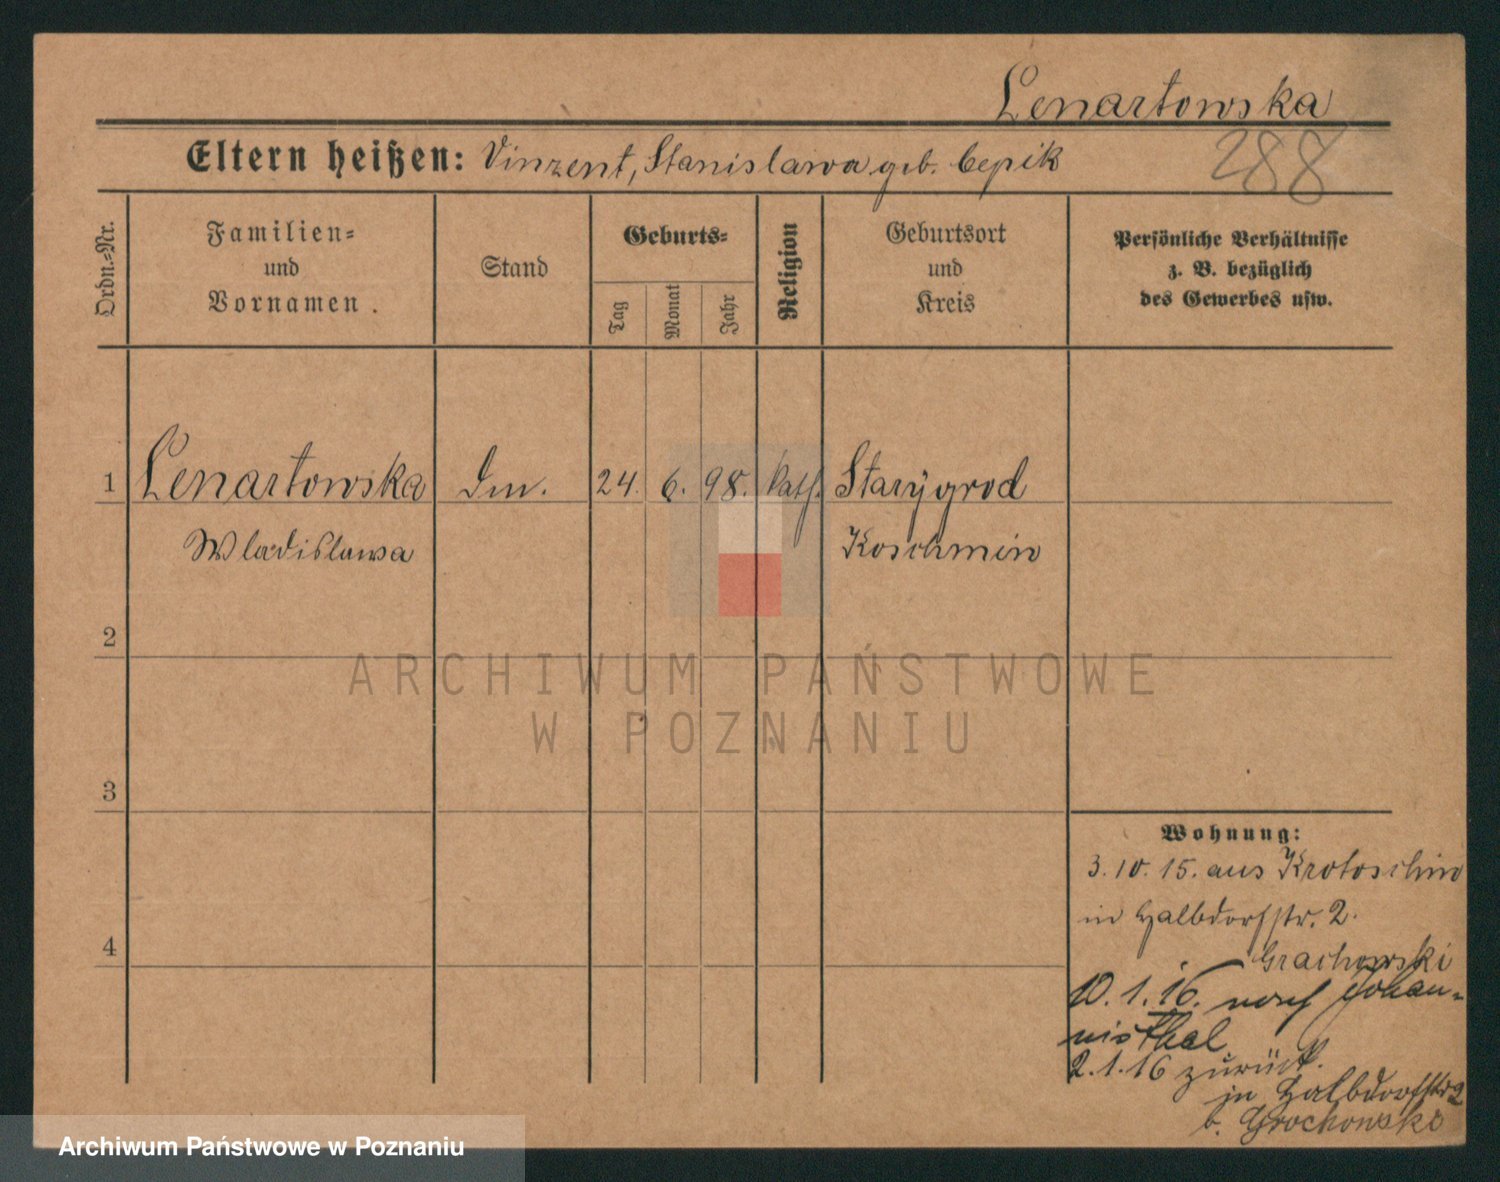 Lenartowska
288
Eltern heißen: Vinzent, Stanislawa geb. Cepik
Ordn.-Nr.
Familien-
und
Vornamen.
Stand
Geburts-
Tag
Monat
Jahr
Religion
Geburtsort
und
Kreis
Persönliche Verhältnisse
z. B. bezüglich
des Gewerbes usw.
1 Lenartowska 24. 6. 98. kath. Starygrod
Wladislawa Koschmin
2
3
4
Wohnung:
3. 10. 15. aus Krotoschin
in Halbdorfstr. 2.
Grachowski
10. 1. 16. nach Johan-
nisthal
2. 1. 16 zurück.
in Halbdorfstr 2
b. Grochowski
ARCHIWUM PAŃSTWOWE
W POZNANIU
Archiwum Państwowe w Poznaniu